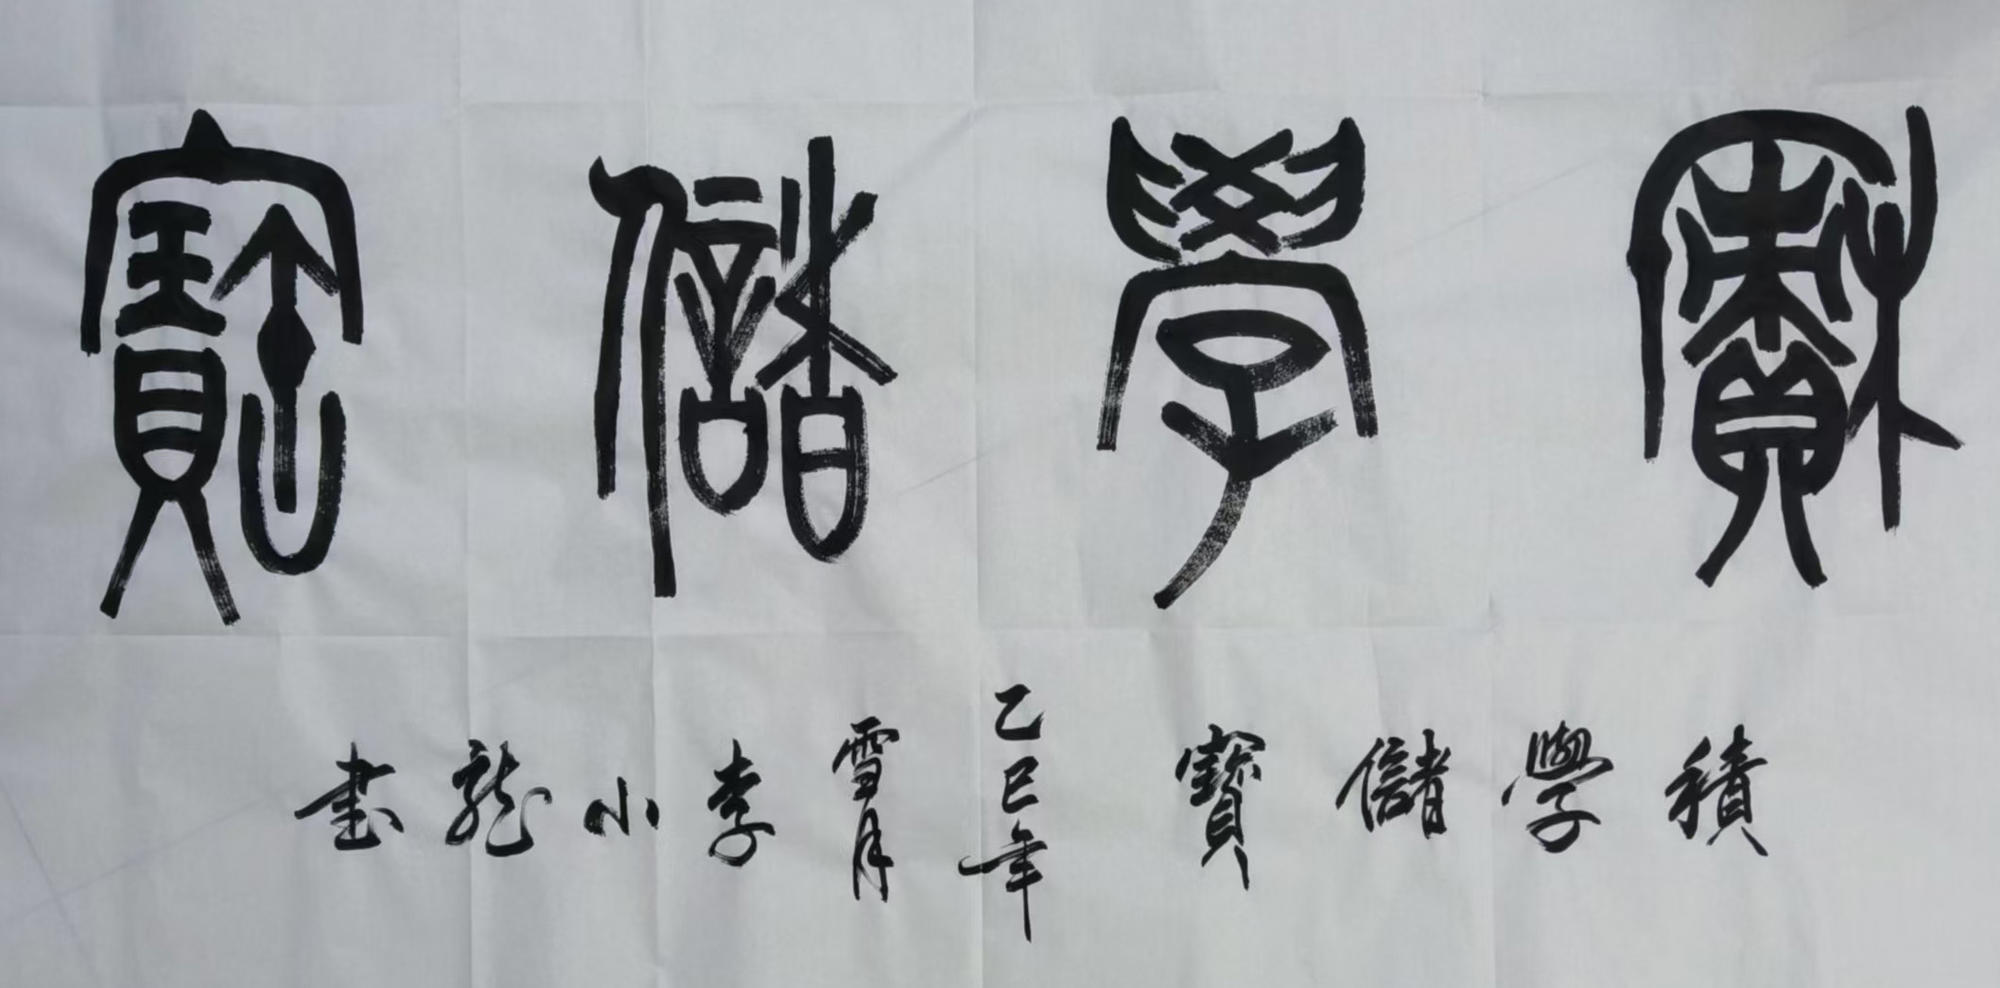 積學儲寶
積學儲寶 乙巳年 雪月 李小龍書